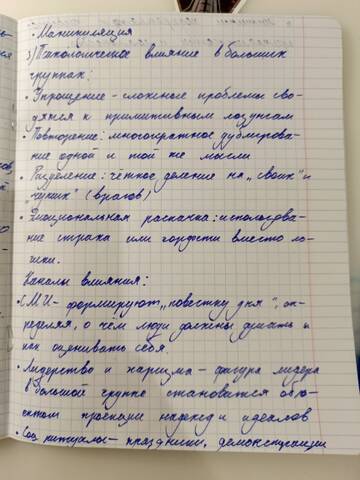 • Манипуляция
3) Психологическое влияние в больших
группах:
• Упрощение - сложные проблемы сво-
дятся к примитивным лозунгам
• Повторение: многократное дублирова-
ние одной и той же мысли
• Разделение: чёткое деление на „своих" и
„чужих" (врагов)
• Эмоциональная раскачка: использова-
ние страха или гордости вместо ло-
гики.
Каналы влияния:
• СМИ - формируют „повестку дня", оп-
ределяя, о чем люди должны думать и
как оценивать себя.
• Лидерство и харизма - фигура лидера
в большой группе становится объ-
ектом проекции надежд и идеалов
• Соц ритуалы - праздники, демонстрации